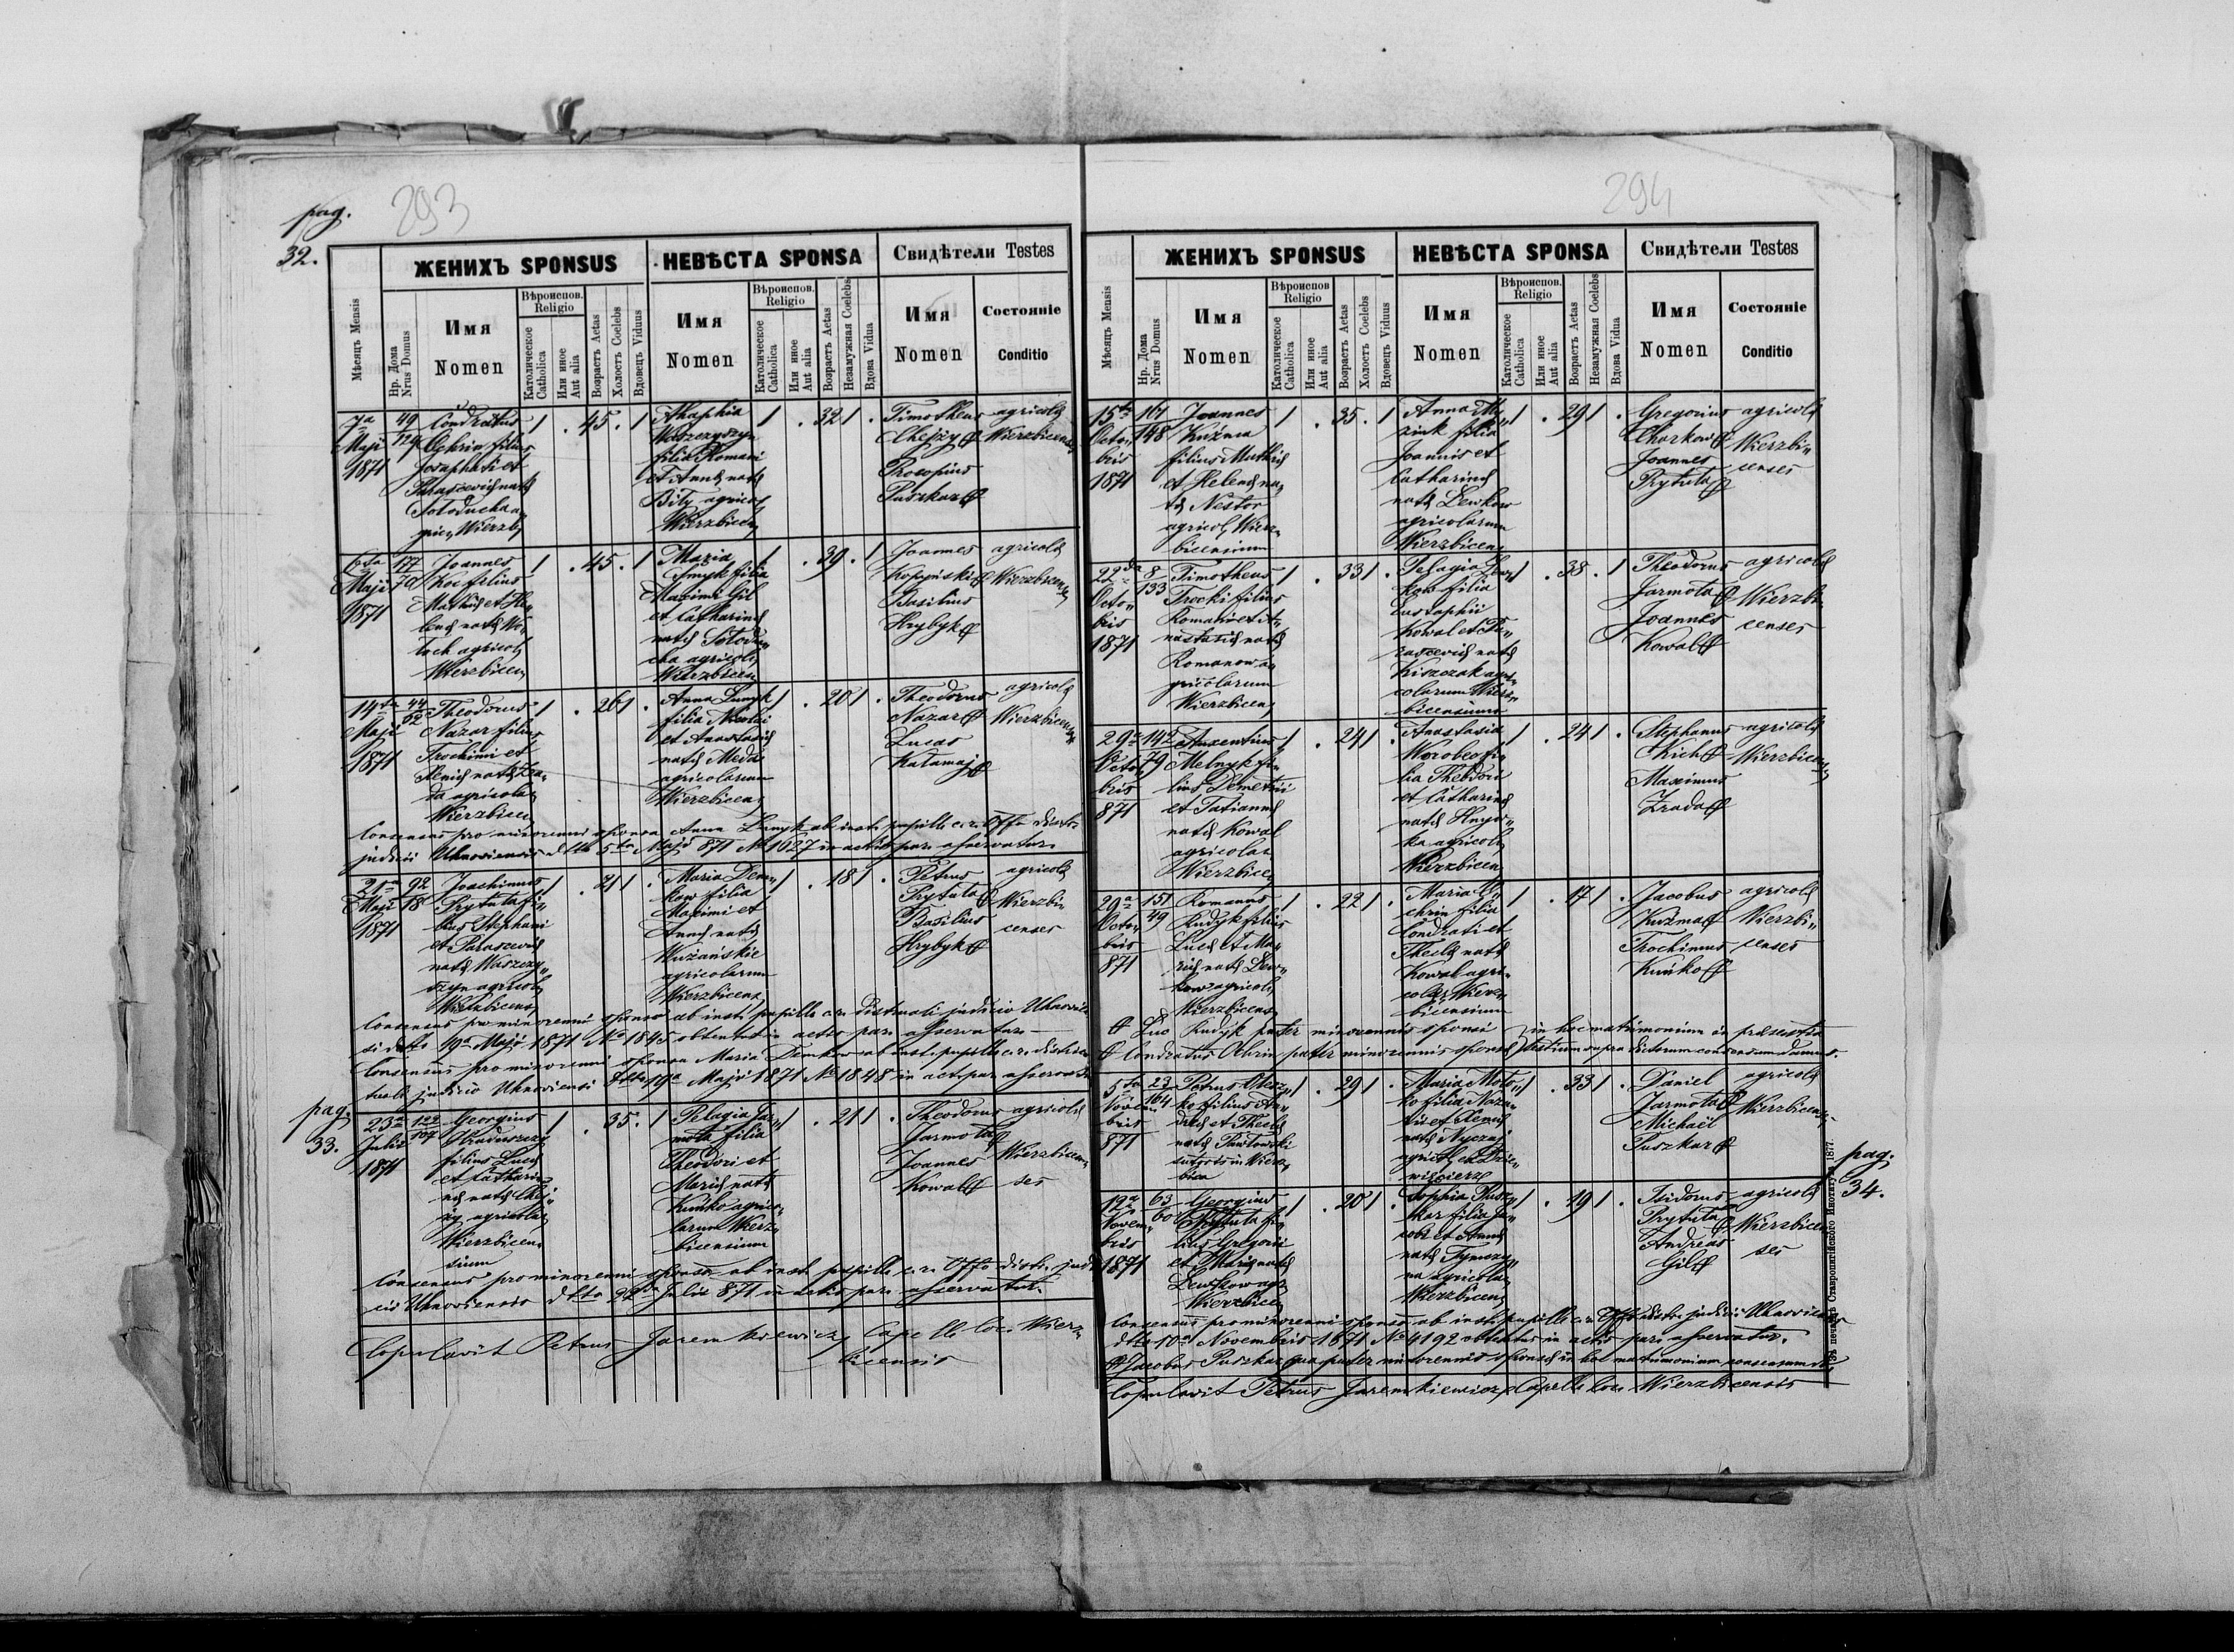 pag.
32.
293
ЖЕНИХЪ SPONSUS
НЕВѢСТА SPONSA
Свидѣтели Testes
Мѣсяцъ Mensis
Нр. Дома
Nrus Domus
Имя
Nomen
Вѣроиспов.
Religio
Католическое
Catholica
Или иное
Aut alia
Возрастъ Aetas
Холостъ Coelebs
Вдовецъ Viduus
Имя
Nomen
Вѣроиспов.
Religio
Католическое
Catholica
Или иное
Aut alia
Возрастъ Aetas
Незамужная Coelebs
Вдова Vidua
Имя
Nomen
Состоянiе
Conditio
7a
Maji
1871
49
124
Condratus
Ochrin filius
Josaphati et
Parasceviæ natæ
Sołoducha a
gric. Wierzb.
1 . 45 . 1
Ahaphia
Waszczyszyn
filia Romani
et Annæ natæ
Biły agricol
Wierzbicen
1 . 32 1 .
Timotheus
Chejzy
Procopius
Puszkar
agricolæ
Wierzbicenses
Maji
1871
177
70
Joannes
Koc filius
Mathiæ et He
lenæ natæ Wo
łoch agricol
Wierzbicen
1 . 45 . 1
Maria
Smyk filia
Maximi Gil
et Catharinæ
natæ Sołodu
cha agricol
Wierzbicen
1 . 39 . 1
Joannes
Kopyński
Basilius
Hrybyk
agricolæ
Wierzbicenses
14ta
Maji
1871
44
52
Theodorus
Nazar filius
Trochimi et
natæ Zra
da agricolar
Wierzbicen
1 . 26 1 .
Anna Lunyk
filia Nicolai
et Anastasiæ
natæ Meda
agricolarum
Wierzbicen
1 . 20 1 .
Theodorus
Nazar
Lucas
Kałamaj
agricolæ
Wierzbicenses
Consensus pro minorenni sponsa Anna Lunyk ab inst. pupill. c. r. Offo distr.
judicii Uhnoviensis ddto 5ta Maji 871 No 1627 in actis par. asservatur.
21a
Maji
1871
92
18
Joachimus
Prytuła fi
lius Stephani
et Parasceviæ
natæ Waszczy
szyn agricol
Wierzbicens
1 . 21 1 .
Maria Dem
kow filia
Maximi et
Annæ natæ
Wużańskie
agricolarum
Wierzbicens
1 . 18 1 .
Petrus
Prytuła
Basilius
Hrybyk
agricolæ
Wierzbi
censes
Consensus pro minorenni sponso ab inst. pupill. c. r. Districtuali judicio Uhnovien
si ddto 19a Maji 1871 No 1845 obtentus in actis par. asservatur. —
Consensus pro minorenni sponsa Maria Demkow ab inst. pupill. c. r. distric
tuali judicio Uhnoviensi ddto 19a Maji 1871 No 1848 in act. par. asservatur
pag.
33.
23a
Julii
1871
122
107
Georgius
filius Lucæ
et Cathari
næ natæ Chej
zy agricolar
Wierzbicen
sium
1 . 35 . 1
Pelagia Jar
mota filia
Theodori et
Mariæ natæ
Kuńko agrico
larum Wierz
bicensium
1 . 21 1 .
Theodorus
Jarmota
Joannes
Kowal
agricolæ
Wierzbicen
ses
Consensus pro minorenni sponsa ab inst. pupill. c. r. Offo distr. judi
cii Uhnoviensis ddto 22 Julii 871 in actis par. asservatur.
Copulavit Petrus Jaremkiewicz Capell. loc. Wierz
bicensis
294
ЖЕНИХЪ SPONSUS
НЕВѢСТА SPONSA
Свидѣтели Testes
Мѣсяцъ Mensis
Нр. Дома
Nrus Domus
Имя
Nomen
Вѣроиспов.
Religio
Католическое
Catholica
Или иное
Aut alia
Возрастъ Aetas
Холостъ Coelebs
Вдовецъ Viduus
Имя
Nomen
Вѣроиспов.
Religio
Католическое
Catholica
Или иное
Aut alia
Возрастъ Aetas
Незамужная Coelebs
Вдова Vidua
Имя
Nomen
Состоянiе
Conditio
15ta
Octo
bris
1871
167
148
Joannes
Kuźma
filius Mathiæ
et Helenæ na
tæ Nestor
agricol. Wierz
bicensium
1 . 35 . 1
filia
Joannis et
Catharinæ
natæ Lewkow
agricolarum
Wierzbicen
1 . 29 1 .
Gregorius
Charkow
Joannes
Prytuła
agricolæ
Wierzbi
censes
22da
Octo
bris
1871
8
133
Timotheus
Trocki filius
Romani et A
nastasiæ natæ
Romanow a
gricolarum
Wierzbicen
1 . 33 1 .
Pelagia Lew
kow filia
Eustaphii
Kowal et Pa
rasceviæ natæ
Kiszczak agri
colarum Wierz
bicensium
1 . 38 . 1
Theodorus
Jarmota
Joannes
Kowal
agricolæ
Wierzbi
censes
29a
Octo
bris
871
142
79
Auxentius
Melnyk fi
lius Demetrii
et Tatiannæ
natæ Kowal
agricolar
Wierzbicen
1 . 24 1 .
Anastasia
Worobec fi
lia Theodori
et Catharinæ
natæ
ka agricol
Wierzbicen
1 . 24 1 .
Stephanus
Kich
Maximus
Zrada
agricolæ
Wierzbicen
29a
Octo
bris
871
151
49
Romanus
Kudyk filius
Lucæ et Ma
riæ natæ Lew
kow agricol
Wierzbicens
1 . 22 1 .
Maria O
chrin filia
Condrati et
Theclæ natæ
Kowal agri
colar Wierz
bicensium
1 . 17 1 .
Jacobus
Kuźma
Trochimus
Kuńko
agricolæ
Wierzbi
censes
Luc Kudyk pater minorennis sponsi
Condratus Ochrin pater minorennis sponsæ
in hoc matrimonium in præsentia
testium supra dictorum consensum damus.
5ta
Novem
bris
871
23
164
Petrus
ko filius An
dreæ et Theclæ
natæ Pawłowski
in Wierz
bica
1 . 29 1 .
Maria Moto
ko filia Naza
rii et
natæ Nyczaj
agricol. ex Dzie
więcierz
1 . 33 1 .
Daniel
Jarmota
Michaël
Puszkar
agricolæ
Wierzbicens
12a
Novem
bris
1871
63
60
Georgius
Prytuła fi
lius Gregorii
et Mariæ natæ
Lewkow agr
Wierzbicen
1 . 20 1 .
Sophia Pusz
kar filia Ja
cobi et Annæ
natæ Tymczy
na agricolar
Wierzbicens
1 . 19 1 .
Isidorus
Prytuła
Andreas
Gil
agricolæ
Wierzbicen
ses
pag.
34.
Consensus pro minorenni sponso ab inst. pupill. c. r. Offo distr. judicii Uhnovien
ddto 10a Novembris 1871 No 4192 obtentus in actis par. asservatur.
Jacobus Puszkar qua pater minorennis sponsæ in hoc matrimonium consensum do
Copulavit Petrus Jaremkiewicz Capell. loc. Wierzbicensis
Зъ печатнѣ Ставропигійского Института 1877.